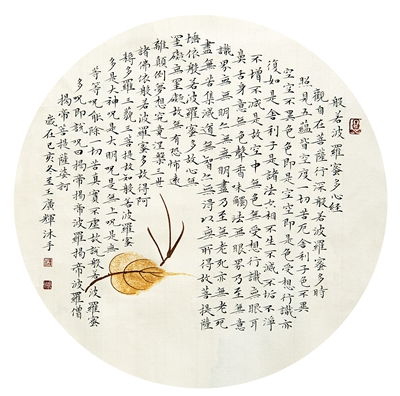 般若波羅蜜多心經
觀自在菩薩行深般若波羅蜜多時
照見五蘊皆空度一切苦厄舍利子色不異
空空不異色色即是空空即是色受想行識亦
復如是舍利子是諸法空相不生不滅不垢不淨
不增不減是故空中無色無受想行識無眼耳
鼻舌身意無色聲香味觸法無眼界乃至無意
識界無無明亦無無明盡乃至無老死亦無老死
盡無苦集滅道無智亦無得以無所得故菩提薩
埵依般若波羅蜜多故心無
罣礙無罣礙故無有恐怖遠
離顛倒夢想究竟涅槃三世
諸佛依般若波羅蜜多故得阿
耨多羅三藐三菩提故知般若波羅蜜
多是大神咒是大明咒是無上咒是無
等等咒能除一切苦真實不虛故說般若波羅蜜
多咒即說咒曰揭帝揭帝波羅揭帝波羅僧
揭帝菩提薩婆訶
歲在己亥冬至王廣輝沐手